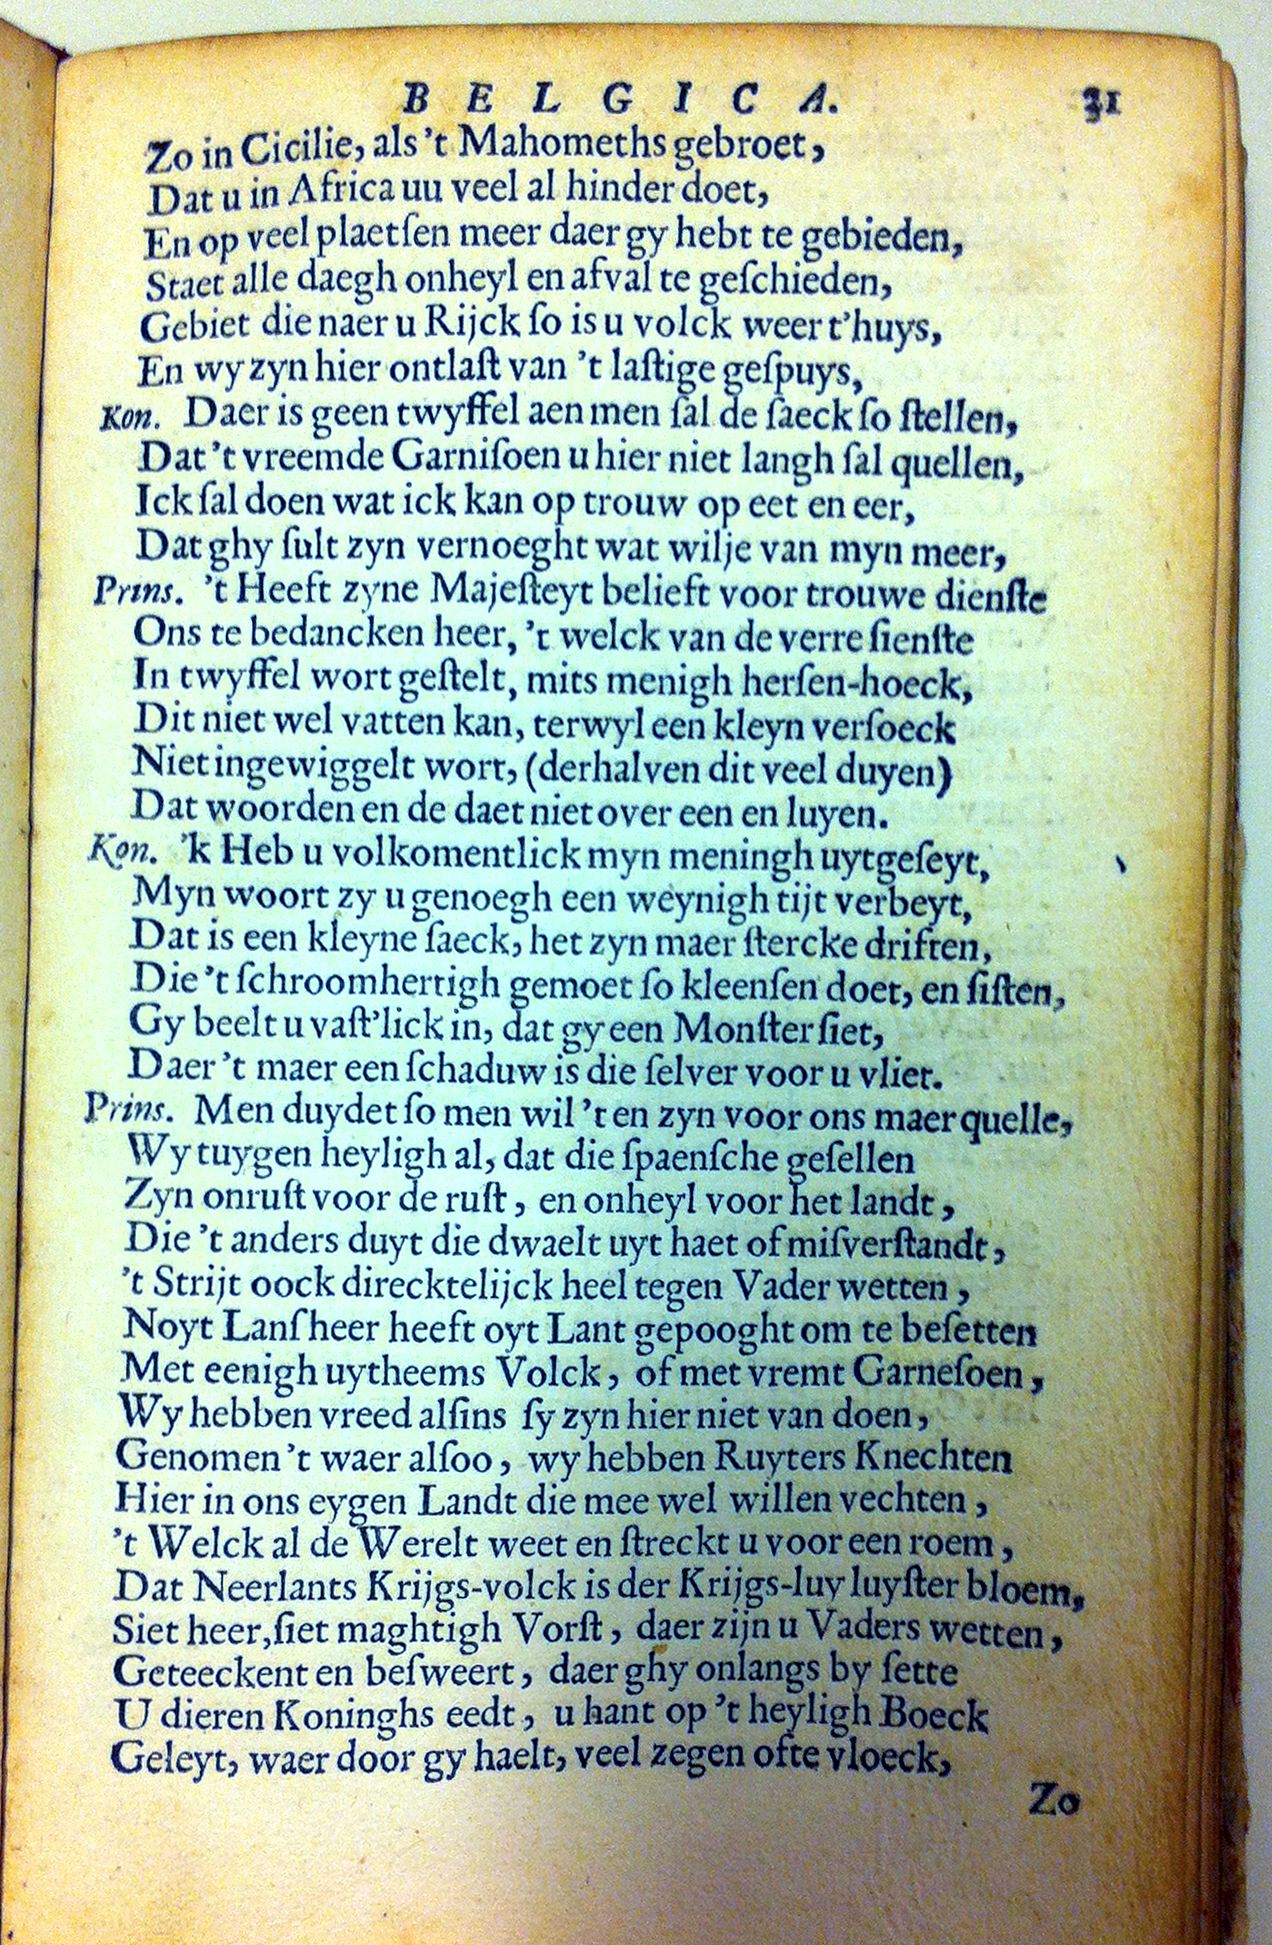 BELGICA. 31
Zo in Cicilie, als 't Mahomeths gebroet,
Dat u in Africa uu veel al hinder doet,
En op veel plaetſen meer daer gy hebt te gebieden,
Staet alle daegh onheyl en afval te geſchieden,
Gebiet die naer u Rijck ſo is u volck weer t'huys,
En wy zyn hier ontlaſt van 't laſtige geſpuys,
Kon. Daer is geen twyffel aen men ſal de ſaeck ſo ſtellen,
Dat 't vreemde Garniſoen u hier niet langh ſal quellen,
Ick ſal doen wat ick kan op trouw op eet en eer,
Dat ghy ſult zyn vernoeght wat wilje van myn meer,
Prins. 't Heeft zyne Majeſteyt belieft voor trouwe dienſte
Ons te bedancken heer, 't welck van de verre ſienſte
In twyffel wort geſtelt, mits menigh herſen-hoeck,
Dit niet wel vatten kan, terwyl een kleyn verſoeck
Niet ingewiggelt wort, (derhalven dit veel duyen)
Dat woorden en de daet niet over een en luyen.
Kon. 'k Heb u volkomentlick myn meningh uytgeſeyt,
Myn woort zy u genoegh een weynigh tijt verbeyt,
Dat is een kleyne ſaeck, het zyn maer ſtercke driften,
Die 't ſchroomhertigh gemoet ſo kleenſen doet, en ſiften,
Gy beelt u vaſt'lick in, dat gy een Monſter ſiet,
Daer 't maer een ſchaduw is die ſelver voor u vliet.
Prins. Men duydet ſo men wil 't en zyn voor ons maer quelle,
Wy tuygen heyligh al, dat die ſpaenſche geſellen
Zyn onruſt voor de ruſt, en onheyl voor het landt,
Die 't anders duyt die dwaelt uyt haet of miſverſtandt,
't Strijt oock direcktelijck heel tegen Vader wetten,
Noyt Lanſheer heeft oyt Lant gepooght om te beſetten
Met eenigh uytheems Volck, of met vremt Garneſoen,
Wy hebben vreed alſins ſy zyn hier niet van doen,
Genomen 't waer alſoo, wy hebben Ruyters Knechten
Hier in ons eygen Landt die mee wel willen vechten,
't Welck al de Werelt weet en ſtreckt u voor een roem,
Dat Neerlants Krijgs-volck is der Krijgs-luy luyſter bloem,
Siet heer, ſiet maghtigh Vorſt, daer zijn u Vaders wetten,
Geteeckent en beſweert, daer ghy onlangs by ſette
U dieren Koninghs eedt, u hant op 't heyligh Boeck
Geleyt, waer door gy haelt, veel zegen ofte vloeck,
Zo